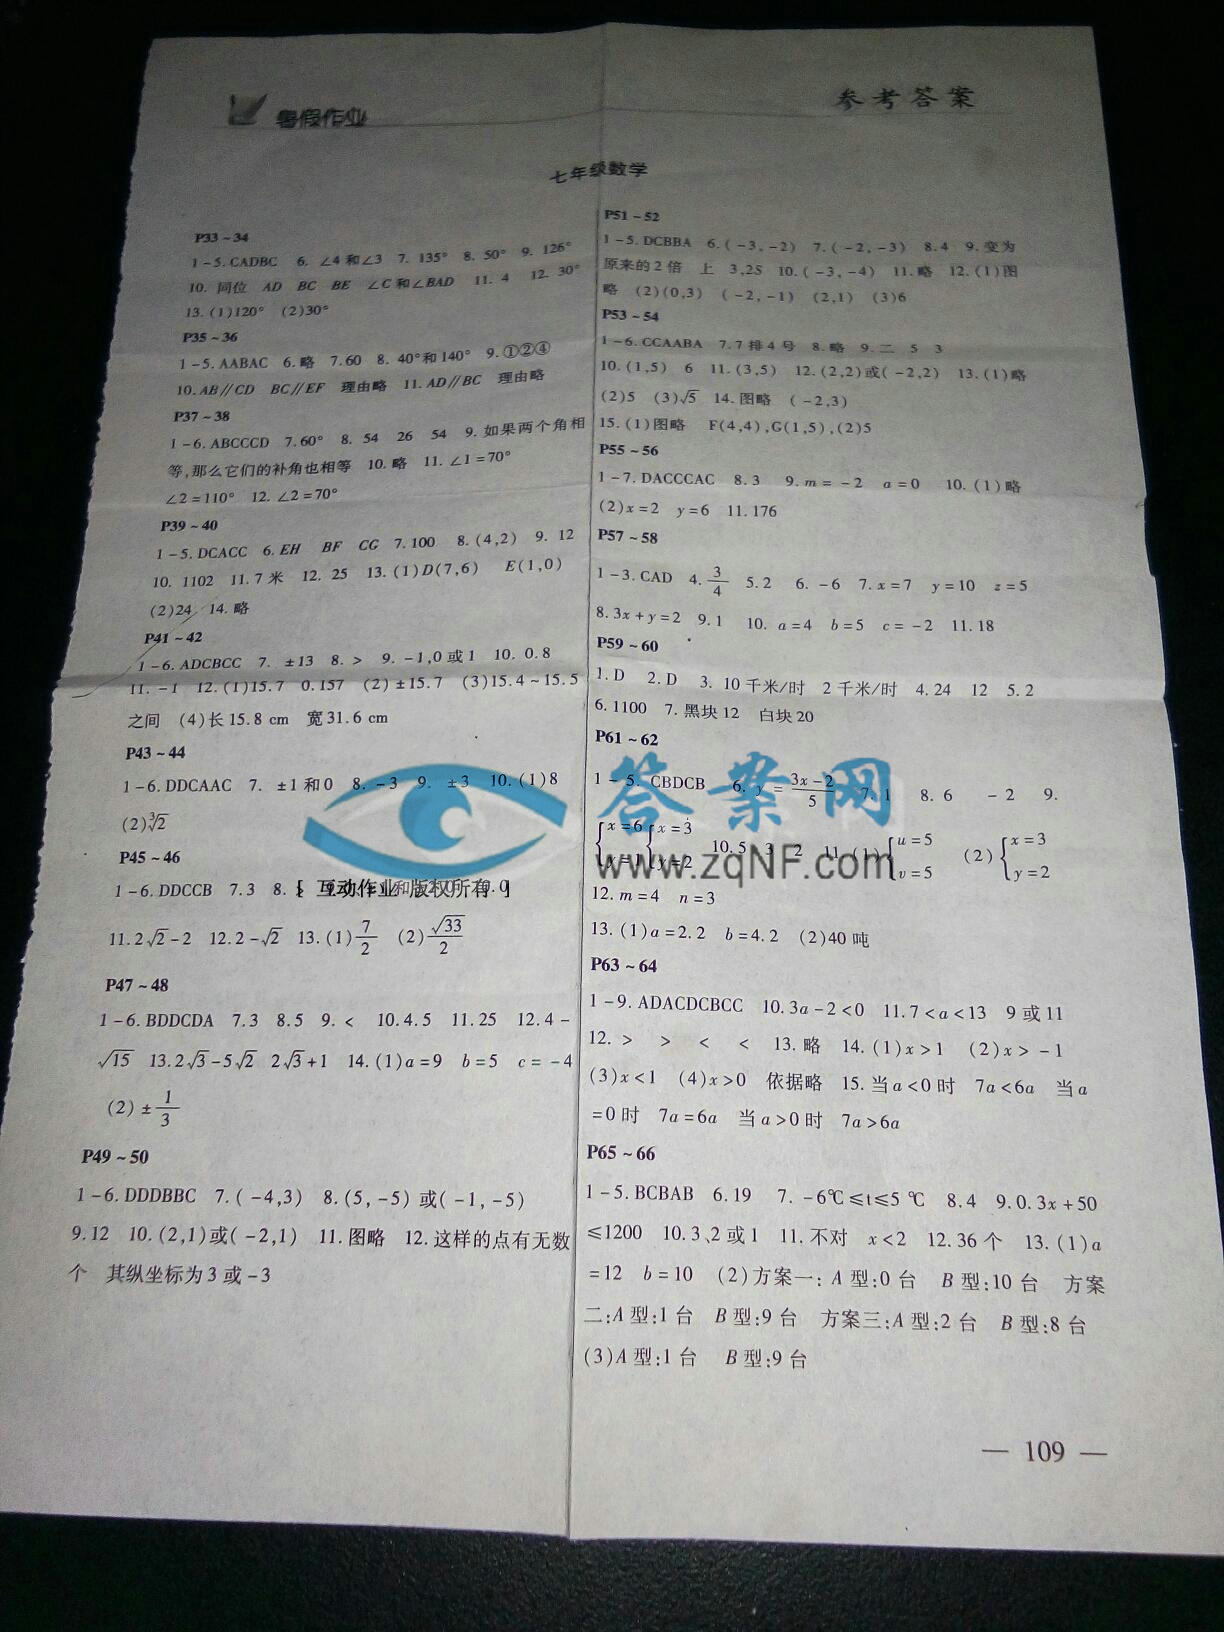 暑假作业
参考答案
七年级数学
P33~34
1-5.CADBC 6.∠4和∠3 7.135° 8.50° 9.126°
10.同位 AD BC BE ∠C和∠BAD 11.4 12.30°
13.(1)120° (2)30°
P35~36
1-5.AABAC 6.略 7.60 8.40°和140° 9.①②④
10.AB∥CD BC∥EF 理由略 11.AD∥BC 理由略
P37~38
1-6.ABCCCD 7.60° 8.54 26 54 9.如果两个角相
等,那么它们的补角也相等 10.略 11.∠1=70°
∠2=110° 12.∠2=70°
P39~40
1-5.DCACC 6.EH BF CG 7.100 8.(4,2) 9.12
10.1102 11.7米 12.25 13.(1)D(7,6) E(1,0)
(2)24 14.略
P41~42
1-6.ADCBCC 7.±13 8.> 9.-1,0或1 10.0.8
11.-1 12.(1)15.7 0.157 (2)±15.7 (3)15.4~15.5
之间 (4)长15.8 cm 宽31.6 cm
P43~44
1-6.DDCAAC 7.±1和0 8.-3 9.±3 10.(1)8
(2)∛2
P45~46
1-6.DDCCB 7.3 8.
[ 互动作业 版权所有 ]
11.2√2-2 12.2-√2 13.(1)7/2 (2)√33/2
P47~48
1-6.BDDCDA 7.3 8.5 9.< 10.4.5 11.25 12.4-
√15 13.2√3-5√2 2√3+1 14.(1)a=9 b=5 c=-4
(2)±1/3
P49~50
1-6.DDDBBC 7.(-4,3) 8.(5,-5)或(-1,-5)
9.12 10.(2,1)或(-2,1) 11.图略 12.这样的点有无数
个 其纵坐标为3或-3
P51~52
1-5.DCBBA 6.(-3,-2) 7.(-2,-3) 8.4 9.变为
原来的2倍 上 3,25 10.(-3,-4) 11.略 12.(1)图
略 (2)(0,3) (-2,-1) (2,1) (3)6
P53~54
1-6.CCAABA 7.7排4号 8.略 9.二 5 3
10.(1,5) 6 11.(3,5) 12.(2,2)或(-2,2) 13.(1)略
(2)5 (3)√5 14.图略 (-2,3)
15.(1)图略 F(4,4),G(1,5),(2)5
P55~56
1-7.DACCCAC 8.3 9.m=-2 a=0 10.(1)略
(2)x=2 y=6 11.176
P57~58
1-3.CAD 4.3/4 5.2 6.-6 7.x=7 y=10 z=5
8.3x+y=2 9.1 10.a=4 b=5 c=-2 11.18
P59~60
1.D 2.D 3.10千米/时 2千米/时 4.24 12 5.2
6.1100 7.黑块12 白块20
P61~62
1-5.CBDCB 6.y=3x-2/5 7.1 8.6 -2 9.
{x=6 y=1 {x=3 y=2 10.5 3 2 11.(1){u=5 v=5 (2){x=3 y=2
答案网
www.zqNF.com
12.m=4 n=3
13.(1)a=2.2 b=4.2 (2)40吨
P63~64
1-9.ADACDCBCC 10.3a-2<0 11.7<a<13 9或11
12.> > < < 13.略 14.(1)x>1 (2)x>-1
(3)x<1 (4)x>0 依据略 15.当a<0时 7a<6a 当a
=0时 7a=6a 当a>0时 7a>6a
P65~66
1-5.BCBAB 6.19 7.-6℃≤t≤5℃ 8.4 9.0.3x+50
≤1200 10.3、2或1 11.不对 x<2 12.36个 13.(1)a
=12 b=10 (2)方案一:A型:0台 B型:10台 方案
二:A型:1台 B型:9台 方案三:A型:2台 B型:8台
(3)A型:1台 B型:9台
— 109 —